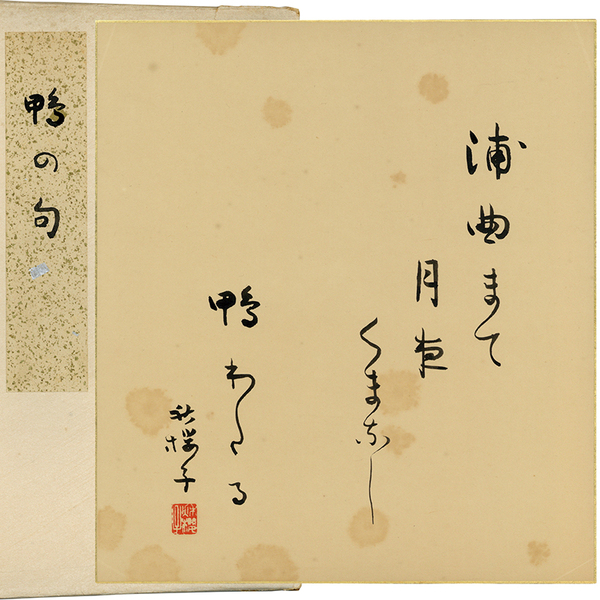 浦曲まて
月夜
くまなし
鴨わたる
秋櫻子
鴨の句